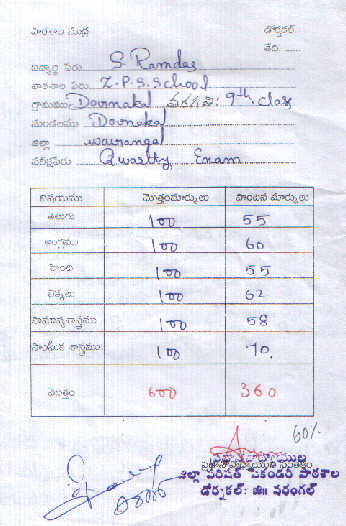 పాఠశాల ముద్ర డోర్నకల్
తేది. ......
విద్యార్థి పేరు S. Ramdas
పాఠశాల పేరు Z.P.S.School
గ్రామము Dornakal తరగతి: 9th class
మండలము Dornakal
జిల్లా warangal
పరీక్షపేరు Quartly, Exam
విషయము మొత్తంమార్కులు పొందిన మార్కులు
తెలుగు 100 55
ఆంగ్లము 100 60
హింది 100 55
లెక్కలు 100 62
సామాన్యశాస్త్రము 100 58
సాంఘిక శాస్త్రము 100 70
మొత్తం 600 360
60%
జిల్లా పరిషత్ సెకండరి పాఠశాల
డోర్నకల్: జిII వరంగల్